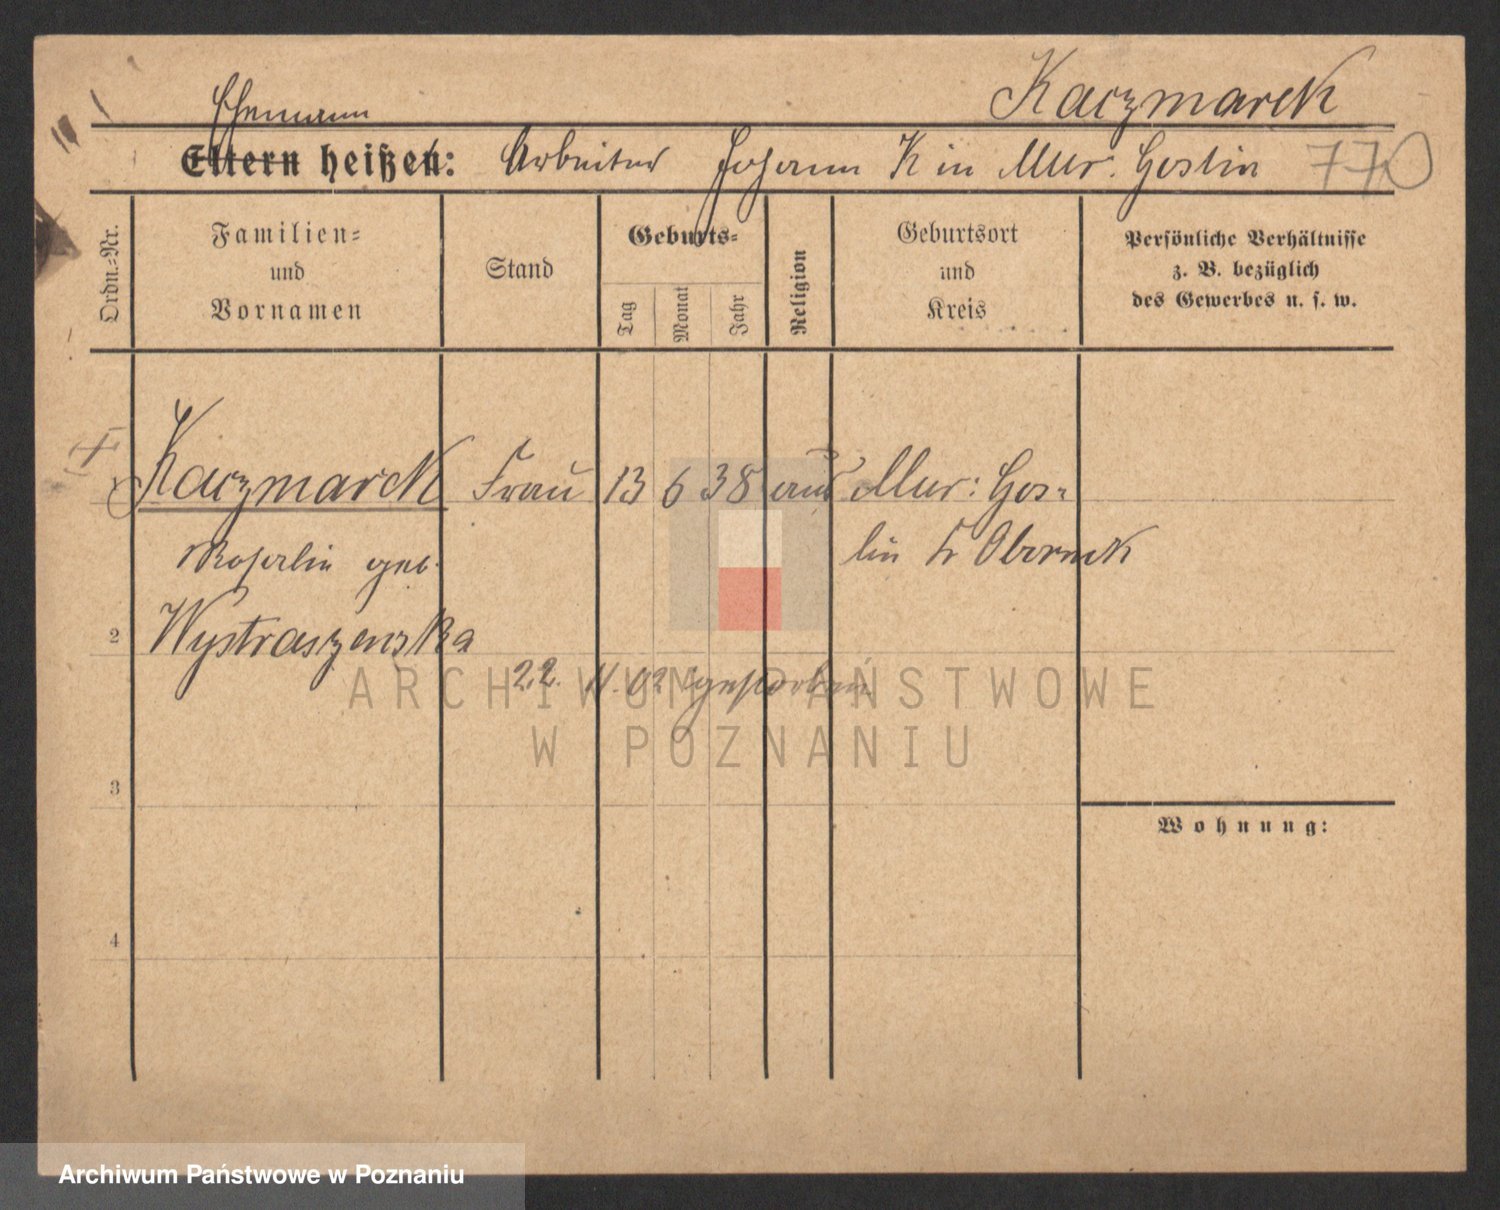 Kaczmarek
Ehemann
Eltern heißen: Arbeiter Johann K in Mur: Goslin 770
Ordn.=Nr.
Familien=
und
Vornamen
Stand
Geburts=
Tag
Monat
Jahr
Religion
Geburtsort
und
Kreis
Persönliche Verhältnisse
z. B. bezüglich
des Gewerbes u. s. w.
Kaczmarek Frau 13 6 38 aus Mur: Gos=
Rosalie geb. lin Kr Obornik
2 Wystraszenska
22. 11. 02 gestorben
ARCHIWUM PAŃSTWOWE
W POZNANIU
3
Wohnung:
4
Archiwum Państwowe w Poznaniu